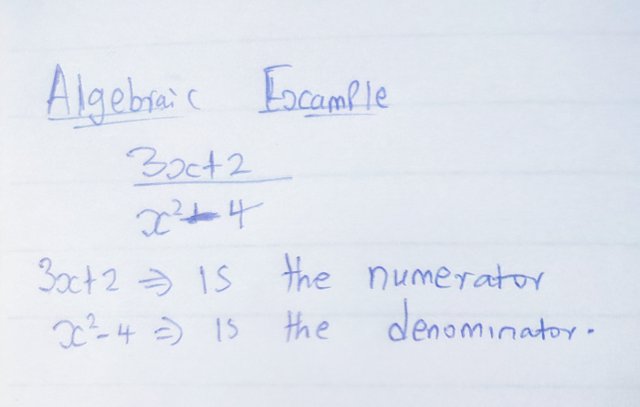 Algebraic Example
3x+2
x²-4
3x+2 ⇒ is the numerator
x²-4 ⇒ is the denominator.